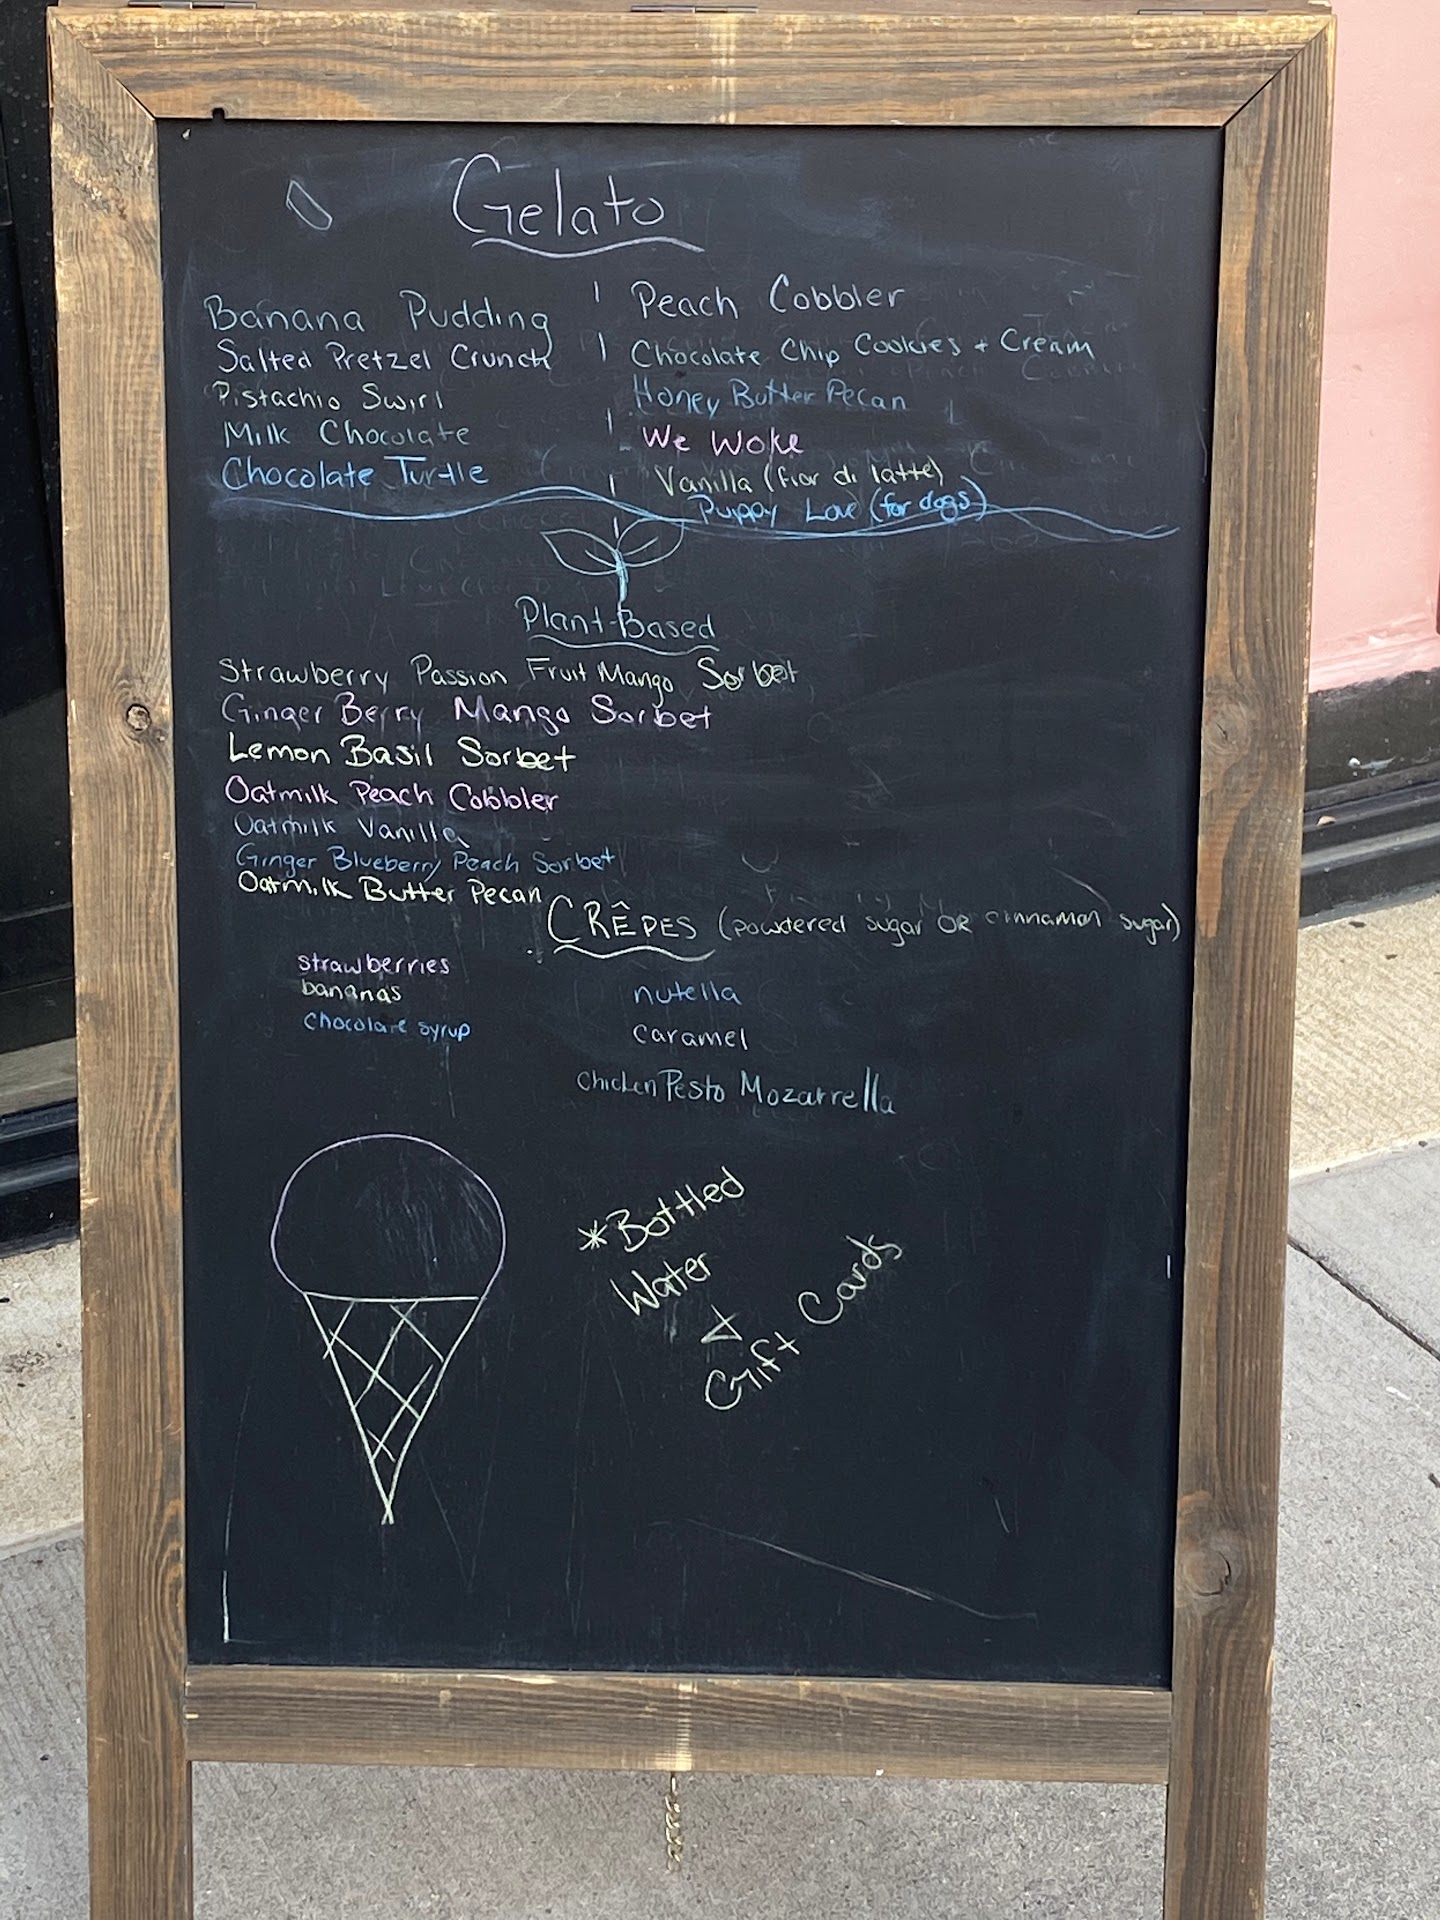 Gelato
Banana Pudding
Salted Pretzel Crunch
Pistachio Swirl
Milk Chocolate
Chocolate Turtle
Peach Cobbler
Chocolate Chip Cookies + Cream
Honey Butter Pecan
We Woke
Vanilla (fior di latte)
Puppy Love (for dogs)
Plant-Based
Strawberry Passion Fruit Mango Sorbet
Ginger Berry Mango Sorbet
Lemon Basil Sorbet
Oatmilk Peach Cobbler
Oatmilk Vanilla
Ginger Blueberry Peach Sorbet
Oatmilk Butter Pecan
CRÊPES (powdered sugar OR cinnamon sugar)
strawberries
bananas
chocolate syrup
nutella
caramel
Chicken Pesto Mozarrella
*Bottled
Water
&
Gift Cards